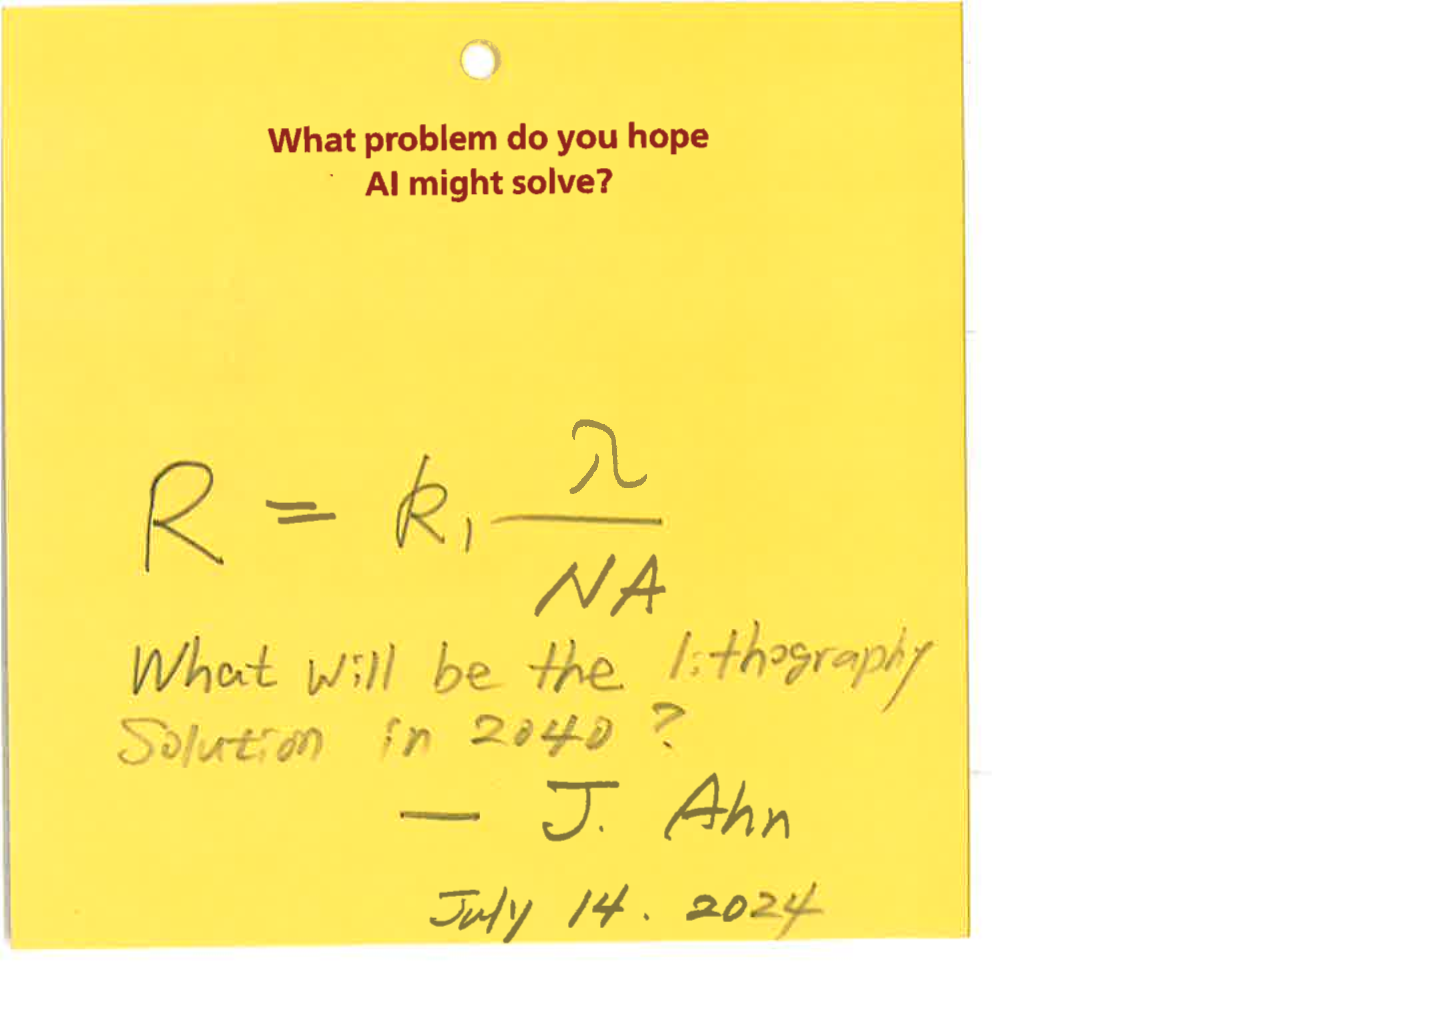 What problem do you hope
AI might solve?
R = k₁ λ / NA
What will be the lithography
Solution in 2040?
— J. Ahn
July 14. 2024